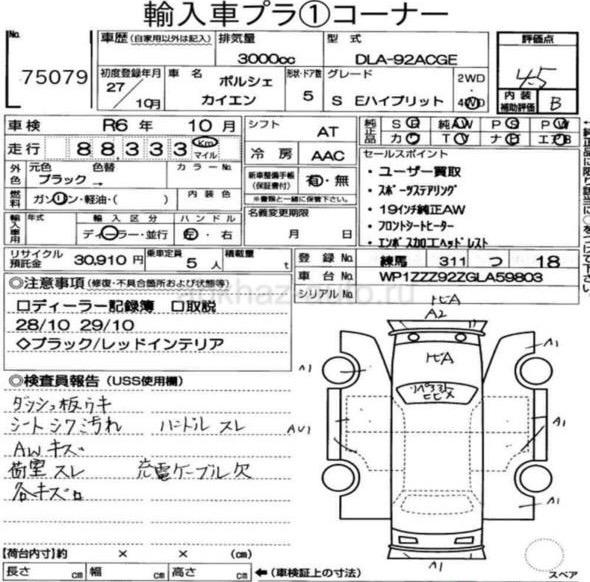 輸入車プラ①コーナー
No. 75079
車歴 (自家用以外は記入) 排気量 3000cc 型式 DLA-92ACGE
評価点 4.5
初度登録年月 27/10月 車名 ポルシェ カイエン 形状・ドア数 5 グレード S Eハイブリット 2WD・4WD
内装補助評価 B
車検 R6年 10月 シフト AT
純正品 SR 純AW PS PW
カワ TV ナビ エアB
走行 88,333 Km マイル 冷房 AAC
セールスポイント
・ユーザー買取
・スポーツステアリング
・19インチ純正AW
・フロントシートヒーター
・エンボス加工ヘッドレスト
外装色 元色 色替 カラーNo.
ブラック→
新車整備手帳(保証書付) 有・無
※書類と一緒に保管下さい。
ガソリン・軽油・( ) 内装色
名義変更期限 月 日
輸入車用 年式 輸入区分 ハンドル
ディーラー・並行 左・右
リサイクル預託金 30,910円 乗車定員 5人 積載量 t
登録No. 練馬 311 つ 18
車台No. WP1ZZZ92ZGLA59803
シリアルNo.
◎注意事項 (修復・不具合箇所および状態等)
□ディーラー記録簿 □取説
28/10 29/10
◇ブラック/レッドインテリア
トビA
A2
トビA
A1
A1
A1
AU1
A1
A1
A1
◎検査員報告 (USS使用欄)
ダッシュ板ウキ
シートシワ汚れ ハンドルスレ
AWキズ
荷室スレ 充電ケーブル欠
各キズ有
【荷台内寸】約 × × (cm)
長さ cm 幅 cm 高さ cm ←(車検証上の寸法)
スペア